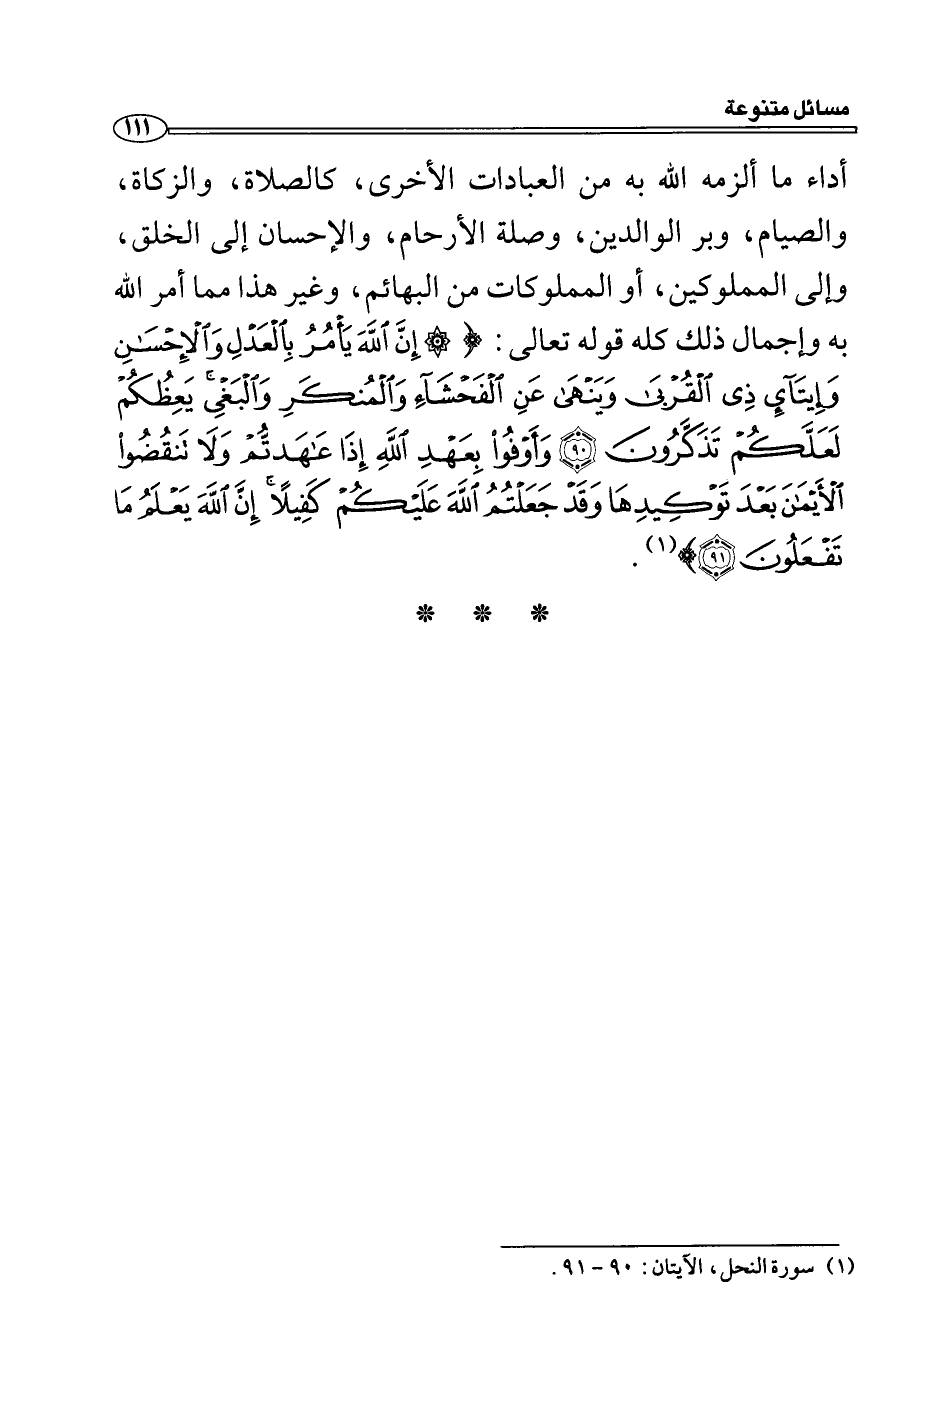 مسائل متنوعة
١١١
أداء ما ألزمه الله به من العبادات الأخرى، كالصلاة، والزكاة،
والصيام، وبر الوالدين، وصلة الأرحام، والإحسان إلى الخلق،
وإلى المملوكين، أو المملوكات من البهائم، وغير هذا مما أمر الله
به وإجمال ذلك كله قوله تعالى: ﴿ ۞ إِنَّ ٱللَّهَ يَأْمُرُ بِٱلْعَدْلِ وَٱلْإِحْسَٰنِ
وَإِيتَآئِ ذِى ٱلْقُرْبَىٰ وَيَنْهَىٰ عَنِ ٱلْفَحْشَآءِ وَٱلْمُنكَرِ وَٱلْبَغْىِ ۚ يَعِظُكُمْ
لَعَلَّكُمْ تَذَكَّرُونَ ۝٩٠ وَأَوْفُوا۟ بِعَهْدِ ٱللَّهِ إِذَا عَٰهَدتُّمْ وَلَا تَنقُضُوا۟
ٱلْأَيْمَٰنَ بَعْدَ تَوْكِيدِهَا وَقَدْ جَعَلْتُمُ ٱللَّهَ عَلَيْكُمْ كَفِيلًا ۚ إِنَّ ٱللَّهَ يَعْلَمُ مَا
تَفْعَلُونَ ۝٩١﴾(١).
* * *
(١) سورة النحل، الآيتان: ٩٠ - ٩١.